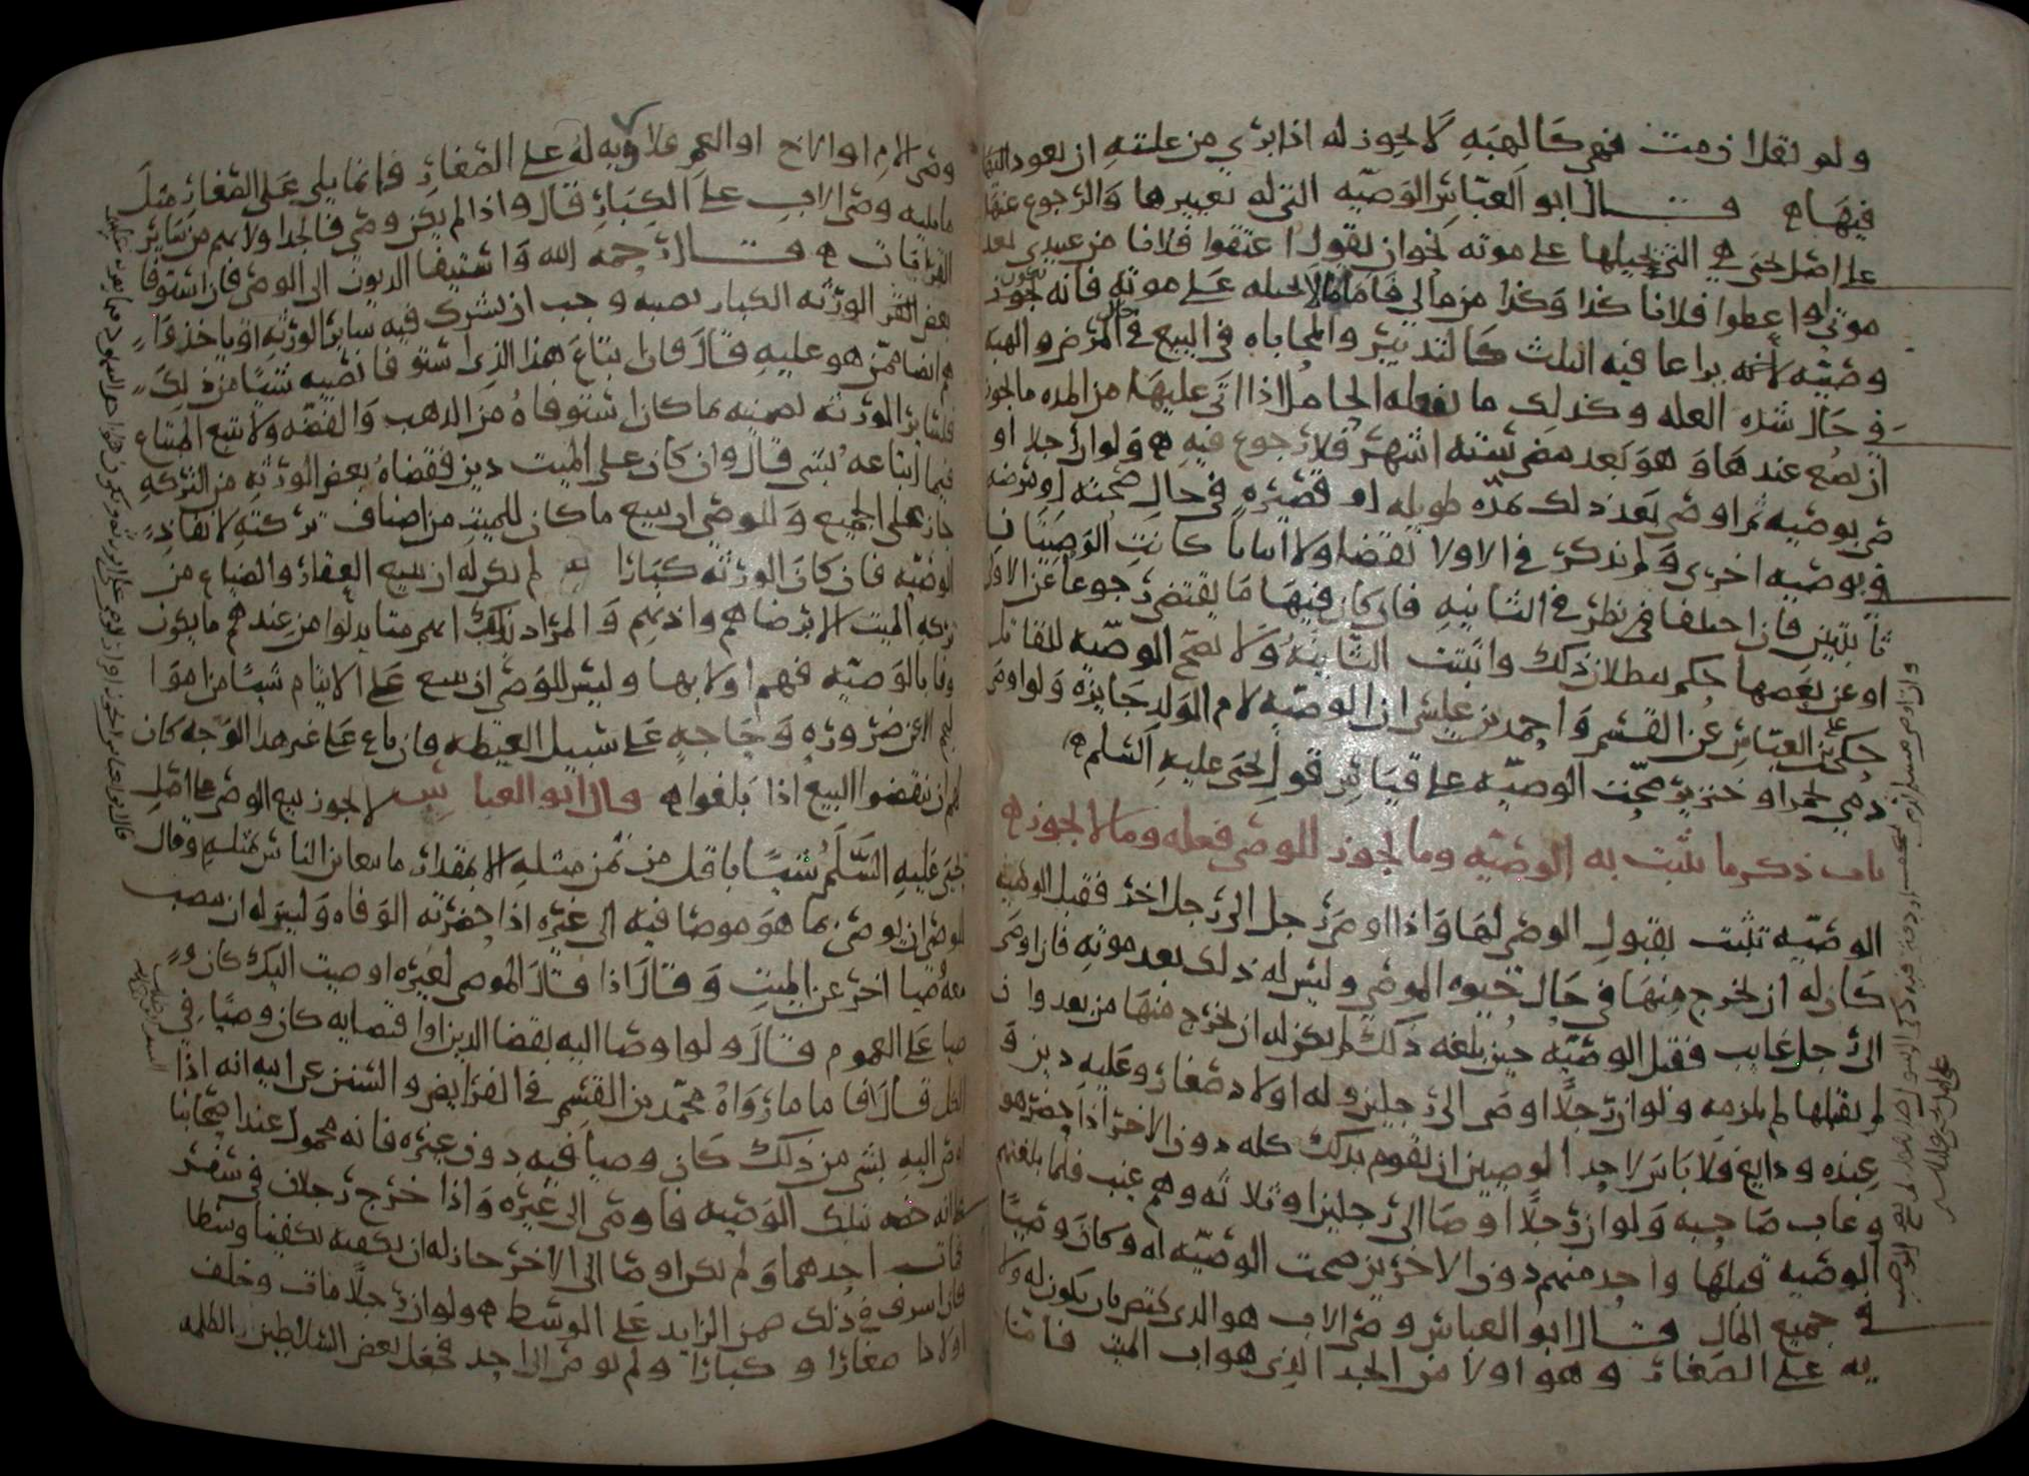 ولو لم يقل ان مت فهي كالهبه لا يجوز له اذا برئ من علته ان يعود
فيها قال ابو العباس الوصيه التي له تغييرها والرجوع عنها
على اصل يحيى هي التي يحيلها على موته نحو ان يقول اعتقوا فلانا من عبيدي بعد
موتي او اعطوا فلانا كذا وكذا من مالي فاما ما لا يحيله على موته فانه يكون
وصيه لانه يراعا فيه الثلث كالتدبير والمحاباه في البيع في حال المرض والهبه
في حال شده العله وكذلك ما تفعله الحامل اذا اتى عليها من المده ما يجوز
ان تضع عندها وهو بعد مضي سته اشهر فلا رجوع فيه ولو ان رجلا او
صى بوصيه ثم اوصى بعد ذلك بمده طويله او قصيره في حال صحته او مرضه
بوصيه اخرى ولم يذكر في الاولا نقضا ولا اثباتا كانت الوصيتان
ثابتتين فان اختلفا في نظر في الثانيه فان كان فيها ما يقتضي رجوعا عن الاول
او عن بعضها حكم ببطلان ذلك واثبتت الثانيه ولا تصح الوصيه للقاتل
حكى علي بن العباس عن القسم واحمد بن عيسى ان الوصيه لام الولد جايزه ولو اوصى
ذمي بخمر او خنزير صحت الوصيه على قياس قول يحيى عليه السلم
باب ذكر ما تثبت به الوصيه وما يجوز للوصي فعله وما لا يجوز
الوصيه تثبت بقبول الوصي لها واذا اوصى رجل الى رجل اخر فقبل الوصيه
كان له ان يخرج منها في حال حيوه الموصي وليس له ذلك بعد موته فان اوصى
الى رجل غايب فقبل الوصيه حين بلغه ذلك لم يكن له ان يخرج منها من بعد وان
لم يقبلها لم تلزمه ولو ان رجلا اوصى الى رجلين وله اولاد صغار وعليه دين و
عنده ودايع فلا باس لاحد الوصيين ان يقوم بذلك كله دون الاخر اذا حضر هو
وغاب صاحبه ولو ان رجلا اوصا الى رجلين او ثلاثه وهم غيب فلما بلغتهم
الوصيه قبلها واحد منهم دون الاخرين صحت الوصيه له وكان وصيا
في جميع المال قال ابو العباس وصي الاب هو الذي يختص بان يكون له ولا
يه على الصغار وهو اولا من الجد الذي هو اب الميت فاما
وصي الام او الاخ او العم فلا ولايه له على الصغار فانما يلي على الصغار مثل
ما يليه وصي الاب على الكبار قال واذا لم يكن وصي فالجد اولا بهم من ساير
القرابات قال رحمه الله واستيفا الديون الى الوصي فان استوفا
بعض الورثه الكبار نصيبه وجب ان يشرك فيه ساير الورثه او ياخذوا
هم ايضا ممن هو عليه قال فان ابتاع هذا الذي استوفا نصيبه شيئا من ذلك
فلساير الورثه تضمينه ما كان استوفاه من الذهب والفضه ولا تتبع المبتاع
فيما ابتاعه بشي قال وان كان على الميت دين فقضاه بعض الورثه من التركه
جاز على الجميع وللوصي ان يبيع ما كان للميت من اصناف تركته لانفاذ
الوصيه فان كان الورثه كبارا لم يكن له ان يبيع العقار والضياع من
تركه الميت الا برضاهم واذنهم والمراد بذلك انهم متا بذلوا من عندهم ما يكون
وفا بالوصيه فهم اولا بها وليس للوصي ان يبيع على الايتام شيئا من اموا
لهم الا عن ضروره وحاجه على سبيل الغبطه فان باع على غير هذا الوجه كان
لهم ان ينقضوا البيع اذا بلغوا قال ابو العباس لا يجوز بيع الوصي على اصل
يحيى عليه السلم شيئا باقل من ثمن مثله الا بمقدار ما يتغابن الناس بمثله وقال
للوصي ان يوصي بما هو موصا فيه الى غيره اذا حضرته الوفاه وليس له ان ينصب
معه وصيا اخر عن الميت وقال اذا قال الموصي لغيره اوصيت اليك كان و
صيا على العموم قال ولو اوصا اليه بقضا الدين او اقتضايه كان وصيا في
الكل قال فاما ما رواه محمد بن القسم في الفرايض والسنن عن ابيه انه اذا
اوصى اليه بشي من ذلك كان وصيا فيه دون غيره فانه محمول عند اصحابنا
على انه خصه بتلك الوصيه فاوصى الى غيره واذا خرج رجلان في سفر
فمات احدهما ولم يكن اوصا الى الاخر جاز له ان يكفنه تكفينا وسطا
فان اسرف في ذلك ضمن الزايد على الوسط ولو ان رجلا مات وخلف
اولادا صغارا وكبارا ولم يوص الى احد فجعل بعض السلاطين الظلمه